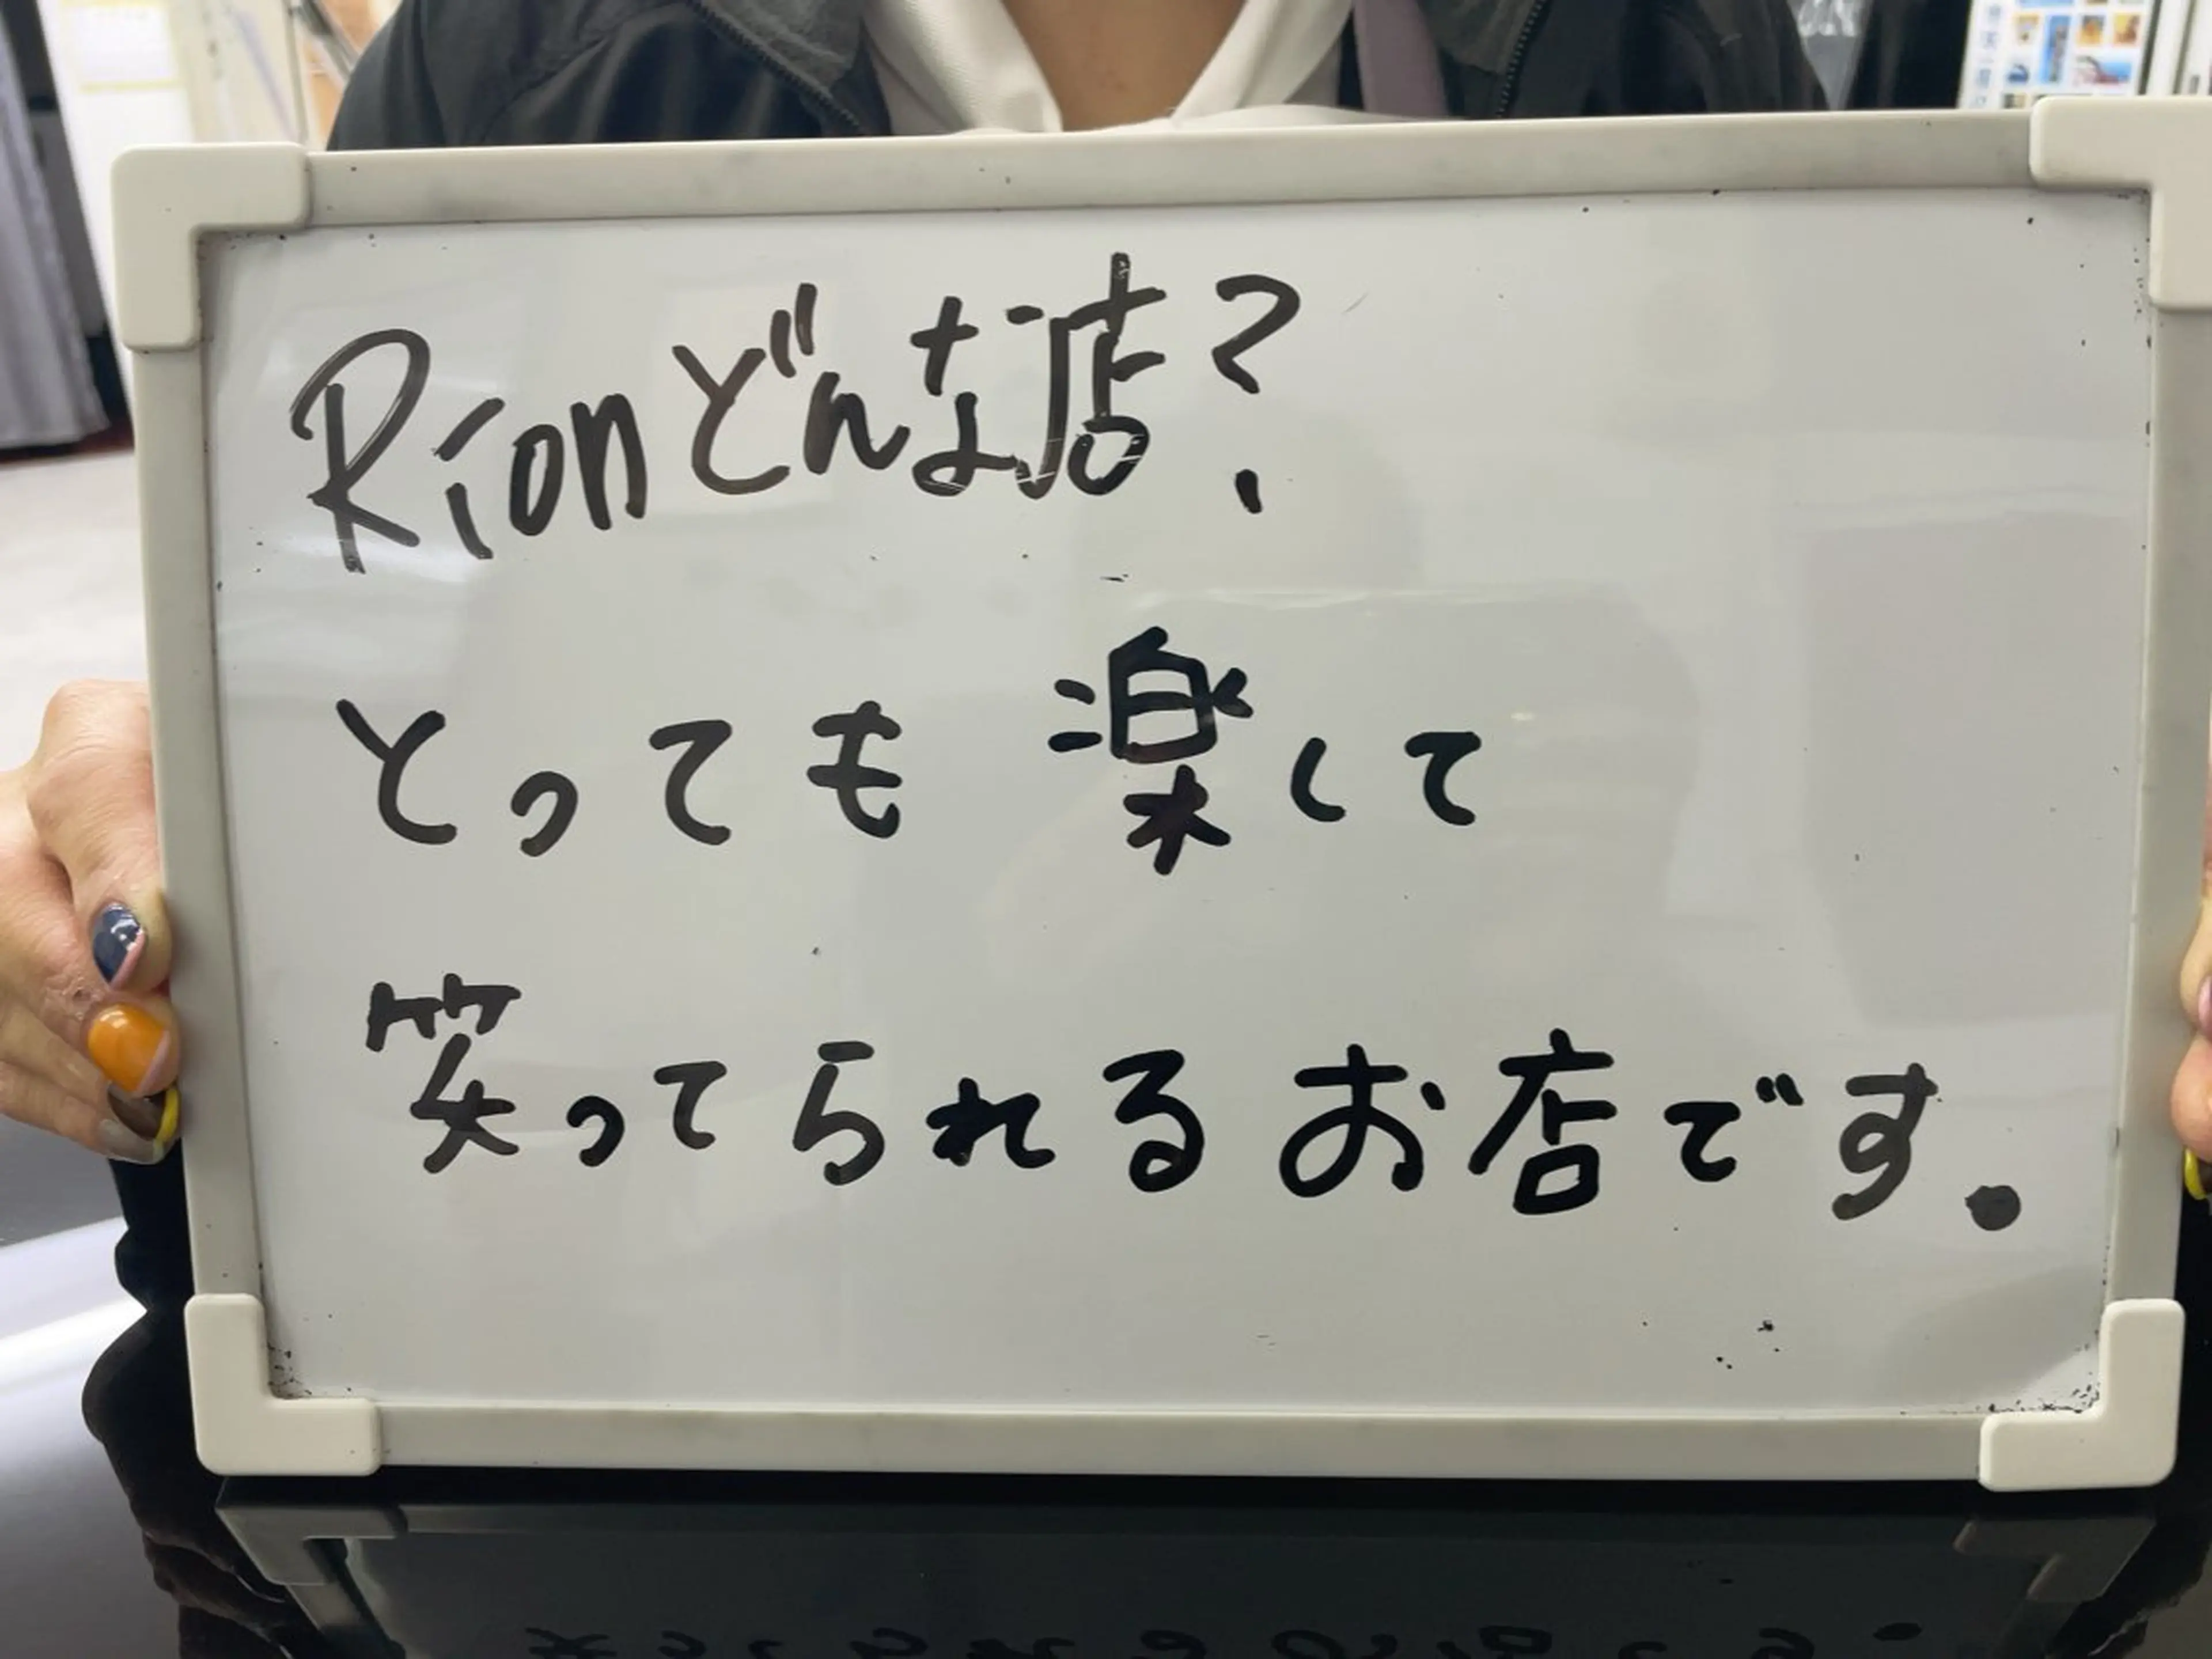 Rionどんな店?
とっても 楽して
笑ってられるお店です.